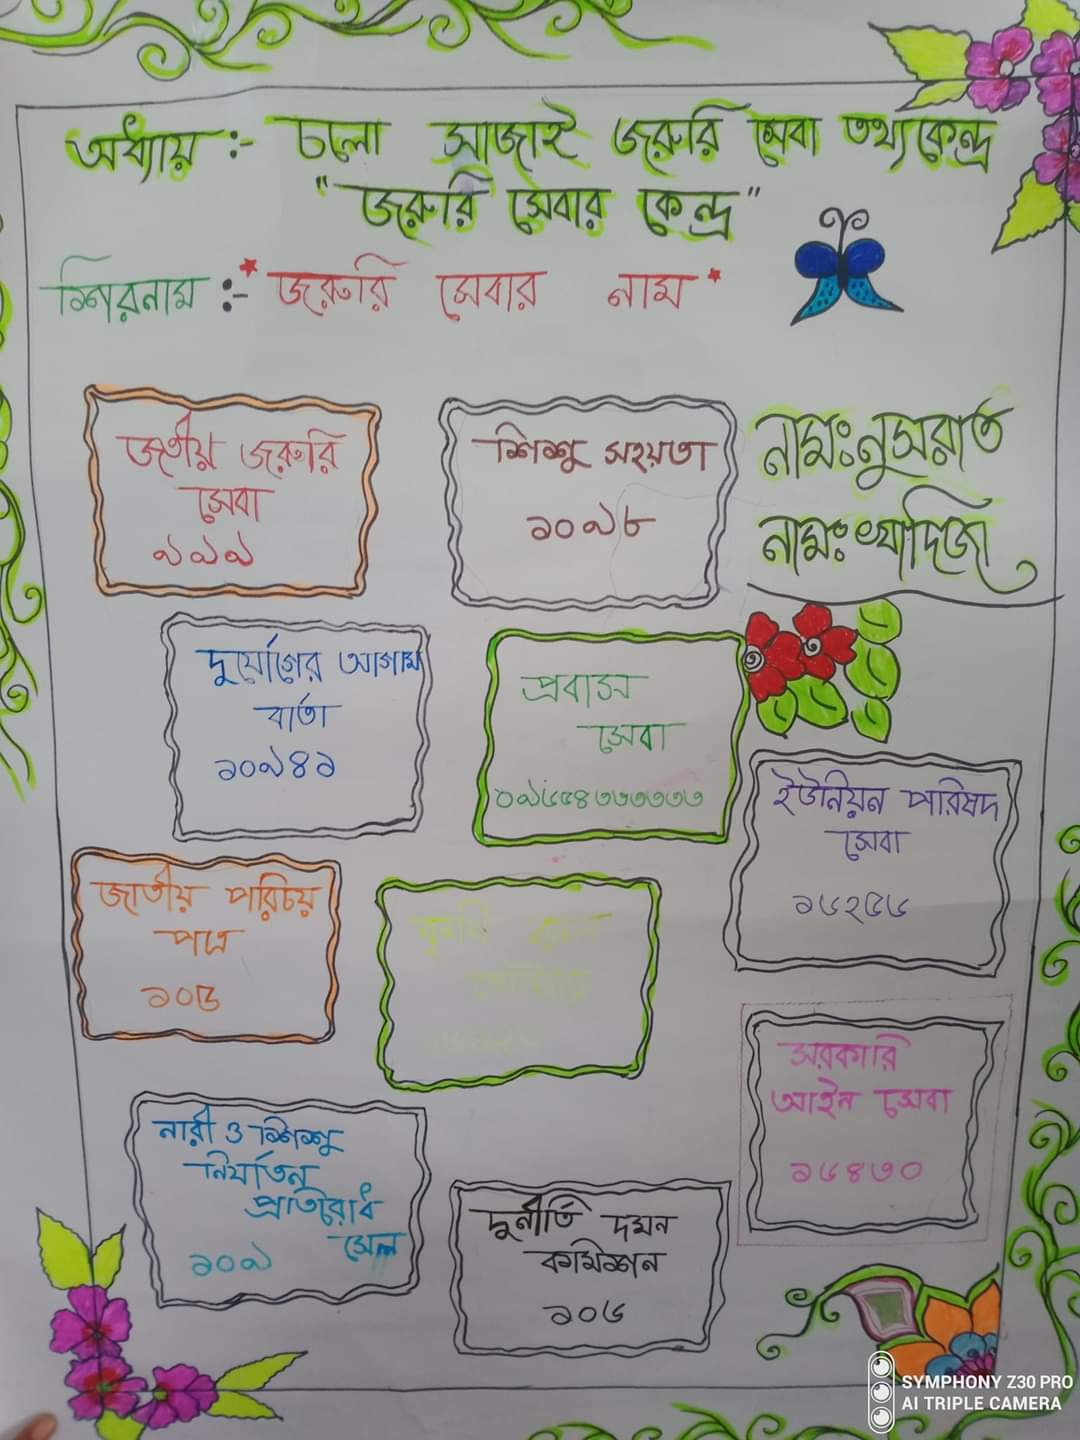 অধ্যায় :- চলো সাজাই জরুরি সেবা তথ্যকেন্দ্র
"জরুরি সেবার কেন্দ্র"
শিরনাম :- *জরুরি সেবার নাম*
জতীয় জরুরি
সেবা
৯৯৯
শিশু সহয়তা
১০৯৮
নামঃ নুসরাত
নামঃ খাদিজা
দুর্যোগের আগাম
বার্তা
১০৯৪১
প্রবাস
সেবা
ইউনিয়ন পারিষদ
সেবা
১৬২৫৬
জাতীয় পরিচয়
পত্র
১০৫
সরকারি
আইন সেবা
১৬৪৩০
নারী ও শিশু
নির্যাতন
প্রতিরোধ
সেল
১০৯
দুর্নীতি দমন
কমিশন
১০৬
SYMPHONY Z30 PRO
AI TRIPLE CAMERA